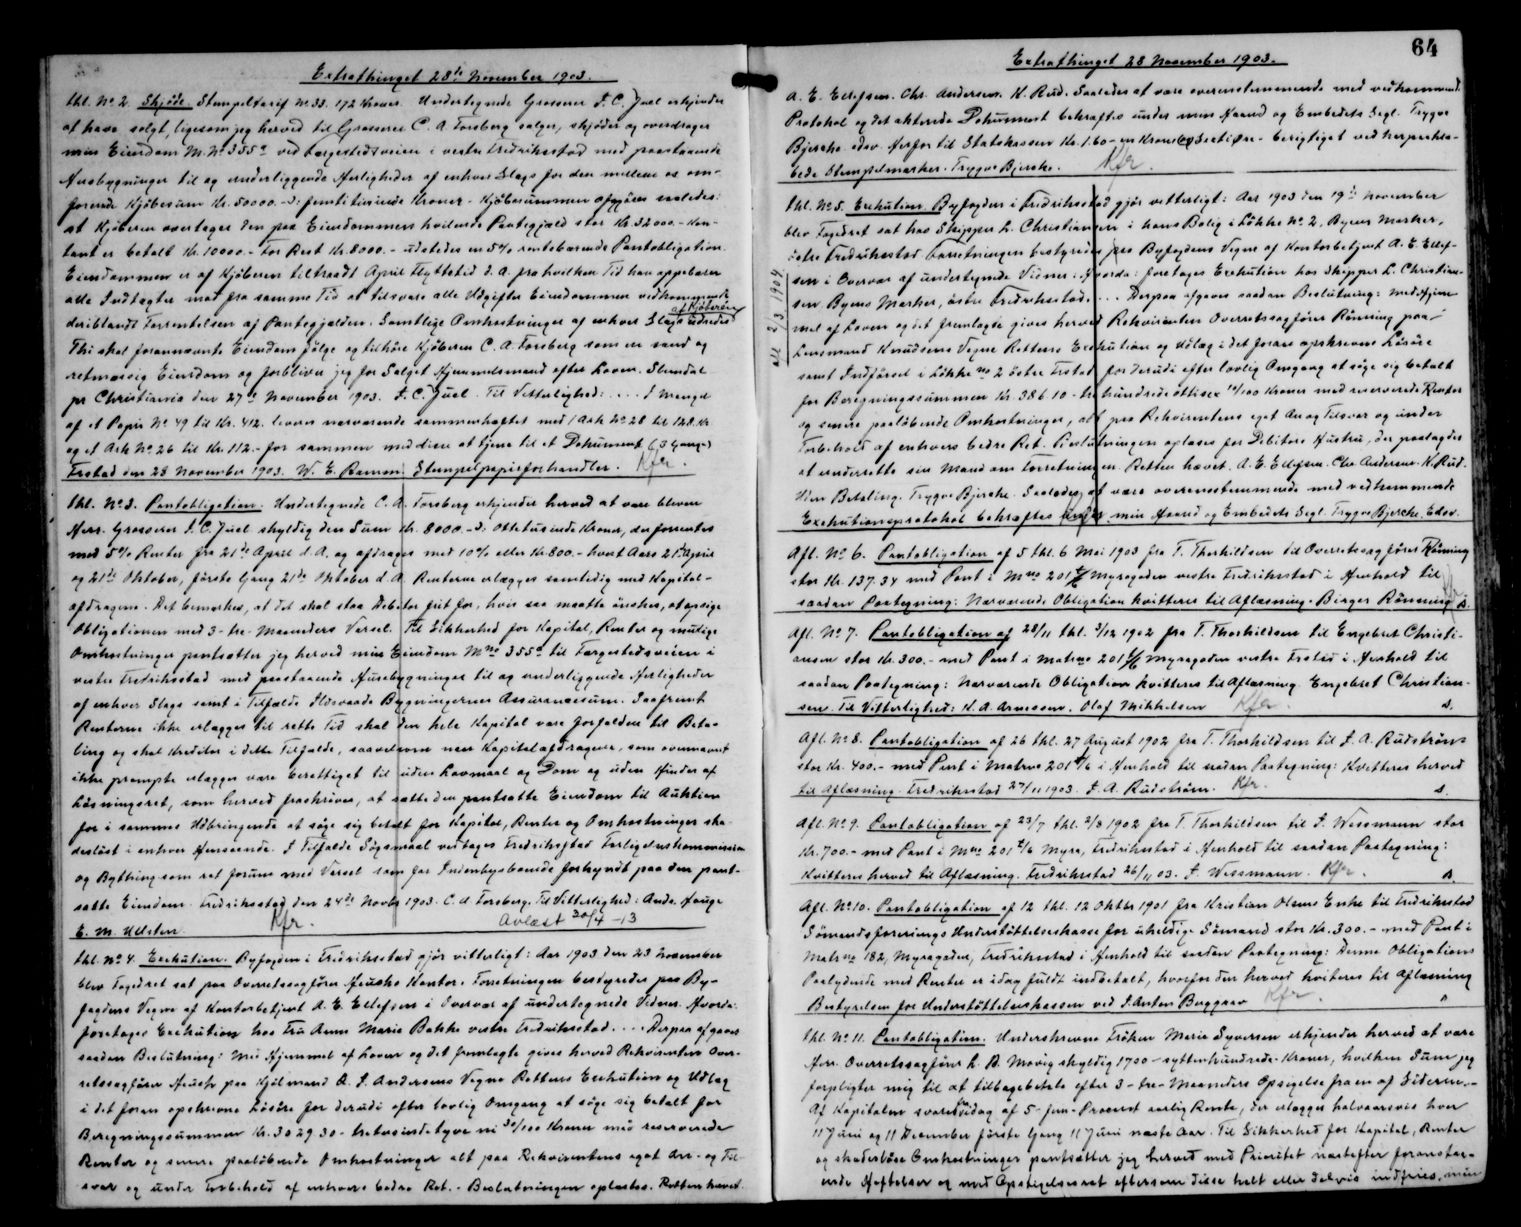 Extrathinget 28de November 1903.
thl. No 2. Skjøde Stempeltarif No 33. 172 Kroner. Undertegnede Grosserer J. C. Juel erkjender
at have solgt, ligesom jeg herved til Grosserer C. A. Forsberg sælger, skjøder og overdrager
min Eiendom M. No 355a ved Færgestedsveien i vestre Fredriksstad med paastaaende
Husbygninger til og underliggende Herligheder af enhver Slags for den mellem os om-
forenede Kjøbesum Kr. 50000.- d: femtitusinde Kroner. Kjøbesummen afgjøres saaledes:
at Kjøberen overtager den paa Eiendommen hvilende Pantegjæld stor Kr. 32000.- Kon-
tant er betalt Kr. 10000.- For Rest Kr. 8000.- udstedes en 5% rentebærende Pantobligation.
Eiendommen er af Kjøberen tiltraadt April Flyttetid d. A. fra hvilken Tid han oppebærer
alle Indtægter mod fra samme Tid at tilsvare alle Udgifter Eiendommen vedkommende
deriblandt Forrentelsen af Pantegjælden. Samtlige Omkostninger af enhver Slags udredes af Kjøberen
Thi skal forannævnte Eiendom følge og tilhøre Kjøberen C. A. Forsberg som en sand og
retmæssig Eiendom og forbliver jeg for Salget Hjemmelsmand efter Loven. Stendal
pr Christiania den 27de November 1903. J. C. Juel. Til Vitterlighed: .... I Mangel
af et Papir No 49 til Kr. 412. leveres nærværende sammenhæftet med 1 Ark No 28 til 128 Kr
og et Ark No 26 til Kr. 112.- for sammen med disse at tjene til et Dokument (3 Gange)
Frstad den 28 November 1903. W. E. Ramm. Stempelpapirforhandler. Kfr.
thl. No 3. Pantobligation. Undertegnede C. A. Forsberg erkjender herved at være bleven
Herr. Grosserer J. C. Juel skyldig den Sum Kr. 8000.- d: Ottetusinde Kroner, der forrentes
med 5% Renter fra 21de April d. A. og afdrages med 10% eller Kr. 800.- hvert Aars 21de April
og 21de Oktober, første Gang 21de Oktober d. A. Renterne erlægges samtidig med Kapital-
afdragene. Det bemærkes, at det skal staa Debitor frit for, hvis saa maatte ønskes, at opsige
Obligationen med 3- tre- Maaneders Varsel. Til Sikkerhed for Kapital, Renter og mulige
Omkostninger pantsætter jeg herved min Eiendom Mno 355a til Færgestedsveien i
vestre Fredriksstad med paastaaende Husebygninger til og underliggende Herligheder
af enhver Slags samt i Tilfælde Ildsvaade Bygningernes Assurancesum. Saafremt
Renterne ikke erlægges til rette Tid skal den hele Kapital være forfalden til Beta-
ling og skal Kreditor i dette Tilfælde, saavelsom naar Kapitalafdragene, som ovennævnt
ikke prompte erlægges være berettiget til uden Lovmaal og Dom og uden Hinder af
Løsningsret, som herved fraskrives, at sætte den pantsatte Eiendom til Auktion
for i sammes Udbringende at søge sig betalt for Kapital, Renter og Omkostninger ska-
desløst i enhver Henseende. I Tilfælde Søgsmaal vedtages Fredriksstad Forligelseskommission
og Bything som ret forum med Varsel som for Indenbysboende forkyndt paa den pant-
satte Eiendom. Fredriksstad den 24de Novbr 1903. C. A. Forsberg. Til Vitterlighed: Ands. Hauge
E. M. Ullsten. Kfr. Avlæst 30/7 -13
thl. No 4. Exekution. Byfogden i Fredriksstad gjør vitterligt: Aar 1903 den 23 November
blev Fogedret sat paa Overretssagfører Heusks Kontor. Forretningen bestyredes paa By-
fogdens Vegne af Kontorbetjent A. E. Ellefsen i Overvær af undertegnede Vidner. Hvorda:
foretages Exekution hos Fru Anne Marie Bakke vestre Fredriksstad .... Derpaa afgaves
saadan Beslutning: Med Hjemmel af Loven og det fremlagte gives herved Rekvirenten Over-
retssagfører Heusk paa Hjulmand A. J. Andersens Vegne Rettens Exekution og Udlæg
i det foran opskrevne Løsøre for derudi efter lovlig Omgang at søge sig betalt for
Beregningssummen Kr. 3029.30- tretusindetyve ni 30/100 Kroner med reserverede
Renter og senere paaløbende Omkostninger alt paa Rekvirentens eget An- og Til-
svar og under Forbehold af enhvers bedre Ret. - Beslutningen oplæstes. Retten hævet.
64
Extrathinget 28 November 1903.
A. E. Ellefsen. Chr. Andersen. K. Rud. Saaledes at være overensstemmende med vedkommende
Protokol og det akterede Dokument bekræftes under min Haand og Embeds Segl. Trygve
Bjerche. edsv. Herfor til Statskassen Kr. 1.60- en Krone 60 - berigtiget ved herpaaklæ-
bede Stempelmærker. Trygve Bjerche. Kfr.
thl. No 5. Exekution. Byfogden i Fredriksstad gjør vitterligt: Aar 1903 den 19de November
blev Fogedret sat hos Skipper L. Christiansen i hans Bolig i Løkke No 2, Byens Marker,
østre Fredriksstad. Forretningen bestyredes paa Byfogdens Vegne af Kontorbetjent A. E. Ellef-
sen i Overvær af undertegnede Vidner: Hvorda: foretages Exekution hos Skipper L. Christian-
sen Byens Marker, østre Fredriksstad. ... Derpaa afgaves saadan Beslutning: Med Hjem-
mel af Loven og det fremlagte gives herved Rekvirenten Overretssagfører Rønning paa
Lensmand Knudsens Vegne Rettens Exekution og Udlæg i det foran opskrevne Løsøre
samt Indførsel i Løkke no 2 østre Frstad for derudi efter lovlig Omgang at søge sig betalt
for Beregningssummen Kr. 386.10- trehundrede ottisex 10/100 Kroner med reserverede Renter
og senere paaløbende Omkostninger, alt paa Rekvirentens eget An og Tilsvar og under
Forbehold af enhvers bedre Ret. Beslutningen oplæses for Debitors Hustru, der paalagdes
at underrette sin Mand om Forretningen. Retten hævet. A. E. Ellefsen. Chr. Andersen. K. Rud.
Uden Betaling. Trygve Bjerche. Saaledes at være overensstemmende med vedkommende
Exekutionsprotokol bekræftes under min Haand og Embeds Segl. Trygve Bjerche. Edsv.
afl 2/3 1904
Afl. No 6. Pantobligation af 5 thl. 6 Mai 1903 fra T. Thorkildsen til Overretssagfører Rønning
stor Kr. 137.34 med Pant i Mno 201 Myragaden vestre Fredriksstad i Henhold til
saadan Paategning: Nærværende Obligation kvitteres til Aflæsning. Birger Rønning. Kfr. s.
Afl. No 7. Pantobligation af 28/11 thl. 3/12 1902 fra T. Thorkildsen til Engebret Christi-
ansen stor Kr. 300.- med Pant i Matrno 201 Myragaden vestre Frstad i Henhold til
saadan Paategning: Nærværende Obligation kvitteres til Aflæsning. Engebret Christian-
sen. Til Vitterlighed: K. A. Arnesen. Olaf Mikkelsen Kfr. s.
Afl. No 8. Pantobligation af 26 thl. 27 August 1902 fra T. Thorkildsen til J. A. Rudstrøm
stor Kr. 400.- med Pant i Matrno 201 i Henhold til saadan Paategning: Kvitteres herved
til Aflæsning. Fredriksstad 27/11 1903. J. A. Rudstrøm. Kfr. s.
Afl. No 9. Pantobligation af 23/7 thl. 2/8 1902 fra T. Thorkildsen til J. Wessmann stor
Kr. 700.- med Pant i Mno 201 Myra, Fredriksstad i Henhold til saadan Paategning:
Kvitteres herved til Aflæsning. Fredriksstad 26/11 03. J. Wessmann. Kfr. s.
Afl. No 10. Pantobligation af 12 thl. 12 Oktbr 1901 fra Kristian Olsens Enke til Fredriksstad
Sømandsforenings Understøttelseskasse for uheldige Sømænd stor Kr. 300.- med Pant i
Matr no 182, Myragaden, Fredriksstad i Henhold til saadan Paategning: Denne Obligations
Paalydende med Renter er idag fuldt indbetalt, hvorfor den herved kviteres til Aflæsning
Bestyrelsen for Understøttelseskassen ved J. Anton Berggren Kfr.
thl. No 11. Pantobligation. Underskrevne Frøken Marie Syversen erkjender herved at være
Herr. Overretssagfører L. B. Mowig skyldig 1700- syttenhundrede- Kroner, hvilken Sum jeg
forpligter mig til at tilbagebetale efter 3- tre- Maaneders Opsigelse fra en af Siderne.-
Af Kapitalen svares fra idag af 5- fem- Procent aarlig Rente, der erlægges halvaarsvis hver
11 Juni og 11 December første Gang 11 Juni næste Aar. Til Sikkerhed for Kapital, Renter
og skadesløse Omkostninger pantsætter jeg herved med Prioritet næstefter foranstaa-
ende Heftelser og med Opstigelsesret eftersom disse helt eller delvis indfries, min